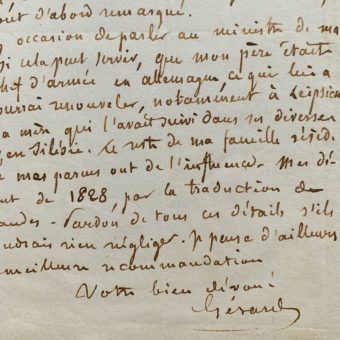 out d'abord remarqué.
occasion de parler au ministre de ma
si cela peut servir, que mon père était
chef d'armée en allemagne, ce qui lui a
pourrai renouveler, notamment à Leipsick
a mère qui l'avait suivi dans ses diverses
en Silésie. Le reste de ma famille réside
mes parens ont de l'influence. Mes dé-
ut de 1828, par la traduction de
andes. Pardon de tous ces détails s'ils
udrais rien négliger. Je pense d'ailleurs
meilleure recommandation
Votre bien dévoué
Gérard